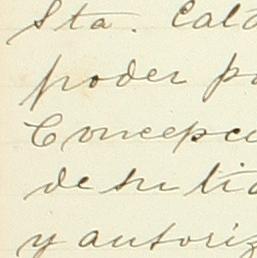 Sta. Cald
poder pa
Concepci
de su tia
y autoriz